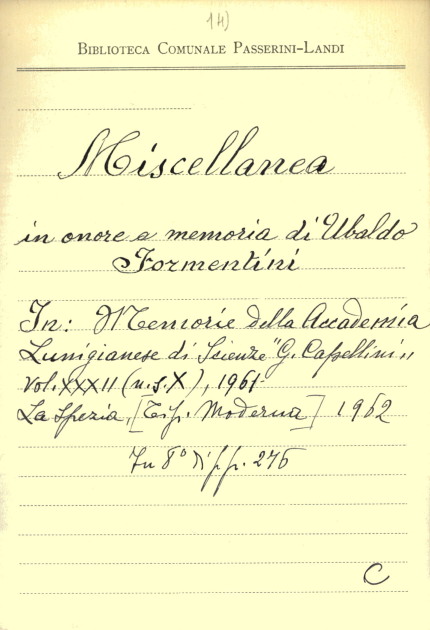 14)
BIBLIOTECA COMUNALE PASSERINI-LANDI
Miscellanea
in onore e memoria di Ubaldo
Formentini
In: Memorie della Accademia
Lunigianese di Scienze "G. Cappellini"
vol. XXXII (n.s. X), 1961-
La Spezia, [Tip. Moderna] 1962
In 8° di pp. 276
C